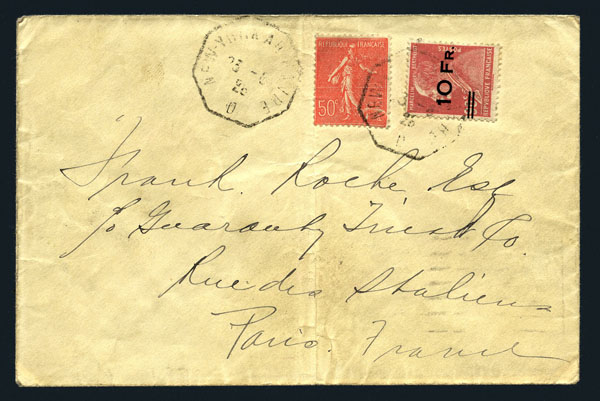 NEW-YORK AU HAVRE
23
28
D
REPUBLIQUE FRANÇAISE
50c
10 FR
POSTES
REPUBLIQUE FRANÇAISE
NEW
28
D
Frank. Roche Esq
c/o Guaranty Trust Co.
Rue des Italiens
Paris. France